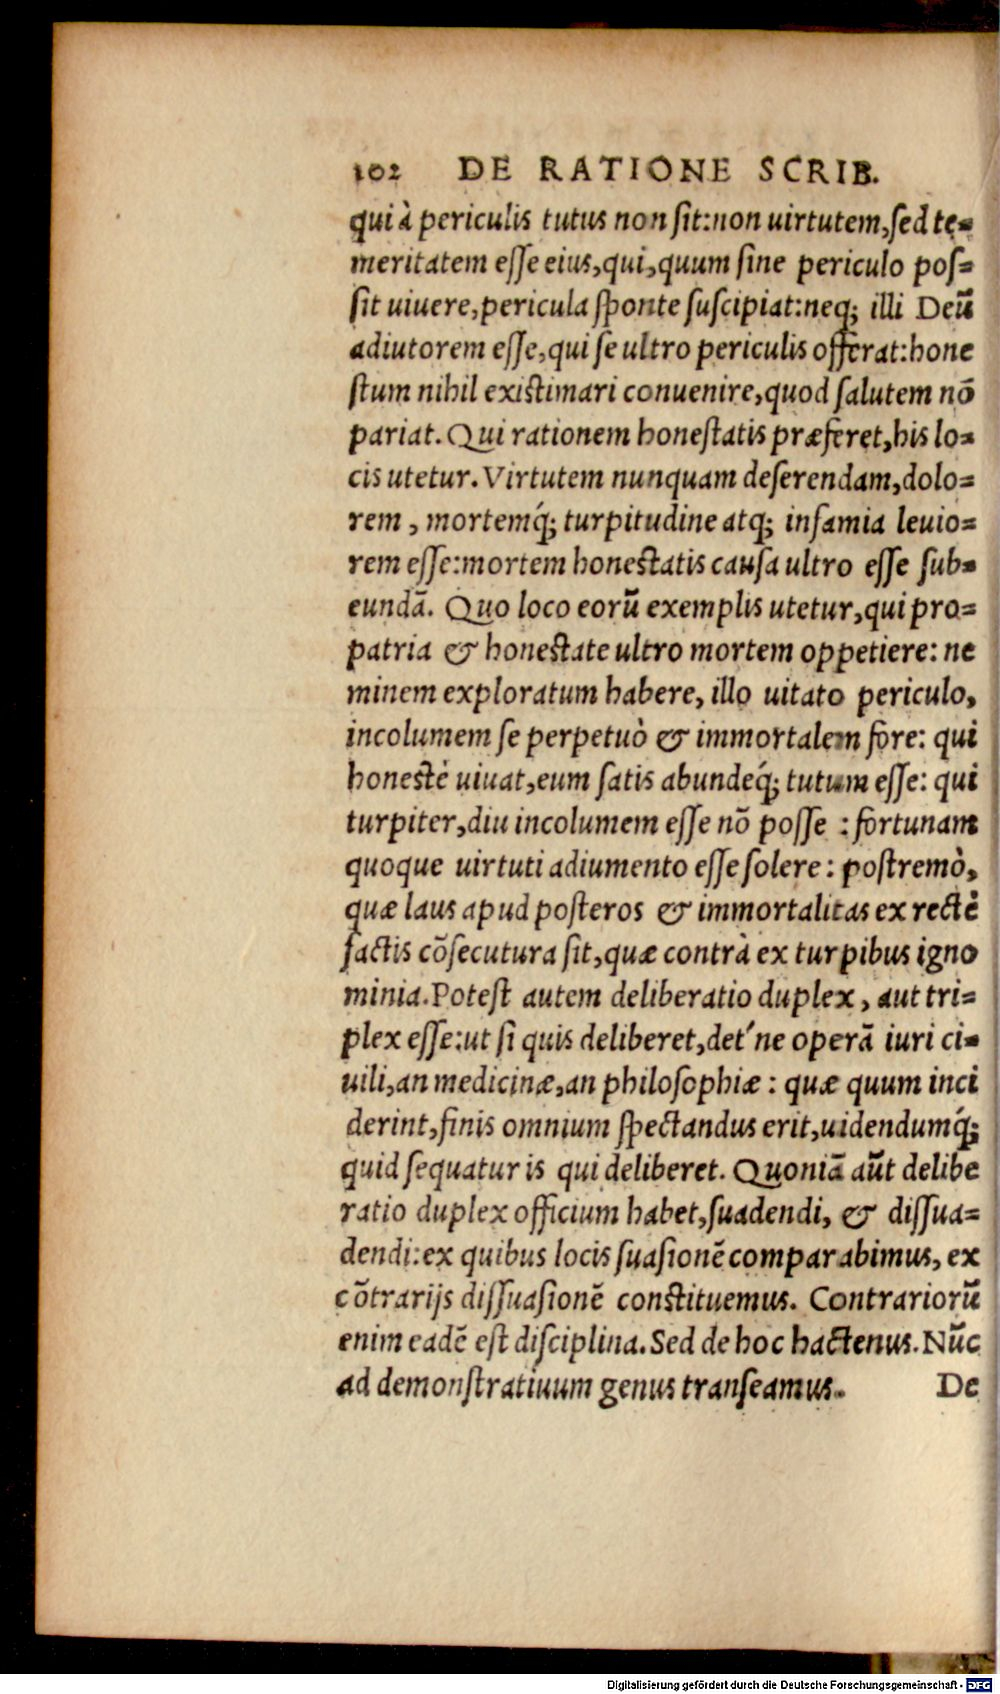 102 DE RATIONE SCRIB.
qui à periculis tutus non sit:non uirtutem,sed te-
meritatem esse eius,qui,quum sine periculo pos-
sit uiuere,pericula sponte suscipiat:neq; illi Deū
adiutorem esse,qui se ultro periculis offerat:hone
stum nihil existimari conuenire,quod salutem nō
pariat. Qui rationem honestatis præferet,his lo-
cis utetur. Virtutem nunquam deserendam,dolo-
rem, mortemq́; turpitudine atq; infamia leuio-
rem esse:mortem honestatis causa ultro esse sub-
eundā. Quo loco eorū exemplis utetur,qui pro-
patria & honestate ultro mortem oppetiere: ne
minem exploratum habere, illo uitato periculo,
incolumem se perpetuò & immortalem fore: qui
honestè uiuat,eum satis abundeq́; tutum esse: qui
turpiter,diu incolumem esse nō posse : fortunam
quoque uirtuti adiumento esse solere: postremò,
quæ laus apud posteros & immortalitas ex rectè
factis cōsecutura sit,quæ contrà ex turpibus igno
minia.Potest autem deliberatio duplex, aut tri-
plex esse:ut si quis deliberet,det'ne operā iuri ci-
uili,an medicinæ,an philosophiæ: quæ quum inci
derint,finis omnium spectandus erit,uidendumq́;
quid sequatur is qui deliberet. Quoniā aūt delibe
ratio duplex officium habet,suadendi, & dissua-
dendi:ex quibus locis suasionē comparabimus, ex
cōtrarijs dissuasionē constituemus. Contrariorū
enim eadē est disciplina. Sed de hoc hactenus. Nūc
ad demonstratiuum genus transeamus. De
Digitalisierung gefördert durch die Deutsche Forschungsgemeinschaft - DFG